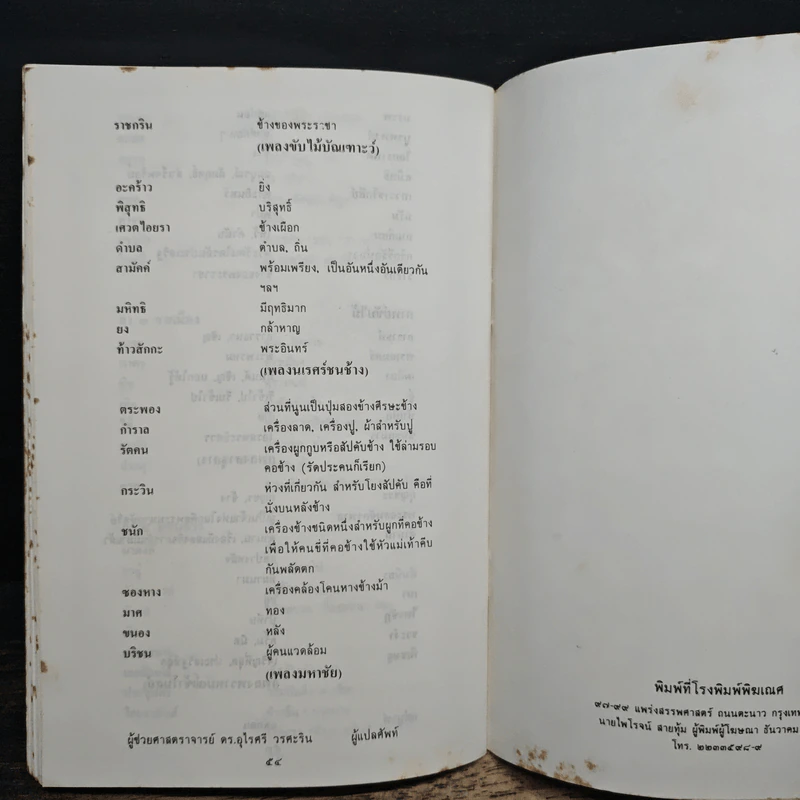 ราชกริน ช้างของพระราชา
(เพลงขับไม้บัณเฑาะว์)
อะคร้าว ยิ่ง
พิสุทธิ บริสุทธิ์
เศวตไอยรา ช้างเผือก
ดำบล ตำบล, ถิ่น
สามัคค์ พร้อมเพรียง, เป็นอันหนึ่งอันเดียวกัน
ฯลฯ
มหิทธิ มีฤทธิมาก
ยง กล้าหาญ
ท้าวสักกะ พระอินทร์
(เพลงนเรศร์ชนช้าง)
ตระพอง ส่วนที่นูนเป็นปุ่มสองข้างศีรษะช้าง
กำราล เครื่องลาด, เครื่องปู, ผ้าสำหรับปู
รัตคน เครื่องผูกกูบหรือสัปคับช้าง ใช้ล่ามรอบ
คอช้าง (รัดประคนก็เรียก)
กระวิน ห่วงที่เกี่ยวกัน สำหรับโยงสัปคับ คือที่
นั่งบนหลังช้าง
ชนัก เครื่องช้างชนิดหนึ่งสำหรับผูกที่คอช้าง
เพื่อให้คนขี่ที่คอช้างใช้หัวแม่เท้าคีบ
กันพลัดตก
ซองหาง เครื่องคล้องโคนหางช้างม้า
มาศ ทอง
ขนอง หลัง
บริชน ผู้คนแวดล้อม
(เพลงมหาชัย)
ผู้ช่วยศาสตราจารย์ ดร.อุไรศรี วรศะริน ผู้แปลศัพท์
๕๔
พิมพ์ที่โรงพิมพ์พิฆเณศ
๙๗-๙๙ แพร่งสรรพศาสตร์ ถนนตะนาว กรุงเทพ
นายไพโรจน์ สายทุ้ม ผู้พิมพ์ผู้โฆษณา ธันวาคม
โทร. ๒๒๓๓๕๙๘-๙